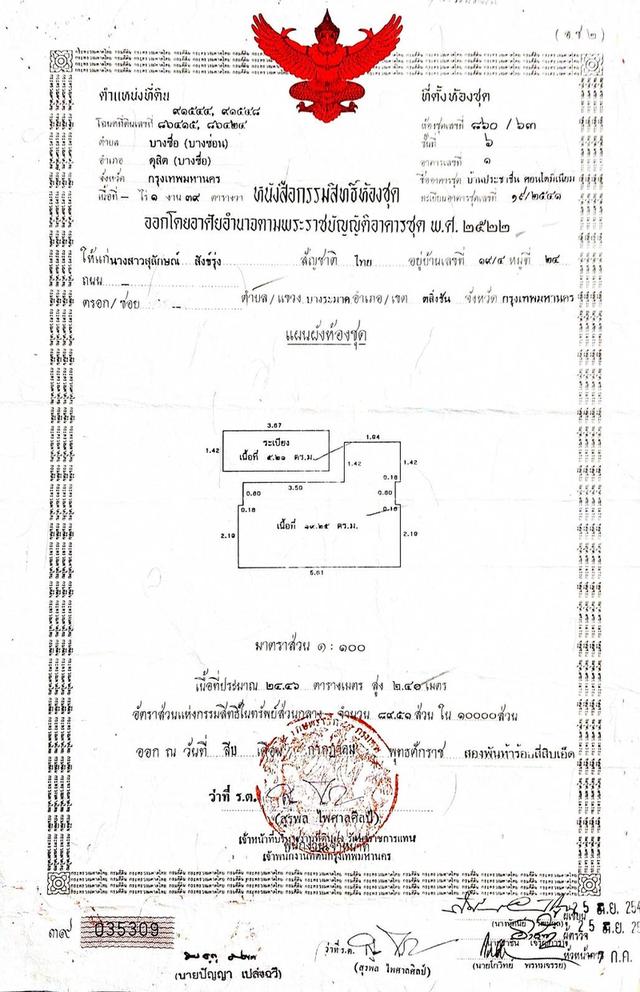 (อ.ช.๒)
ตำแหน่งที่ดิน
ที่ตั้งห้องชุด
๙๑๕๔๔, ๙๑๕๔๘
โฉนดที่ดินเลขที่ ๘๖๔๑๕, ๘๖๔๒๔
ห้องชุดเลขที่ ๘๖๐/๖๓
ตำบล บางซื่อ (บางซ่อน)
ชั้นที่ ๖
อำเภอ ดุสิต (บางซื่อ)
อาคารเลขที่ ๑
จังหวัด กรุงเทพมหานคร
ชื่ออาคารชุด บ้านประชาชื่น คอนโดมิเนียม
เนื้อที่ - ไร่ ๑ งาน ๓๙ ตารางวา
หนังสือกรรมสิทธิ์ห้องชุด
ทะเบียนอาคารชุดเลขที่ ๑๙/๒๕๔๑
ออกโดยอาศัยอำนาจตามพระราชบัญญัติอาคารชุด พ.ศ. ๒๕๒๒
ให้แก่ นางสาวสุลักษณ์ สังข์รุ่ง สัญชาติ ไทย อยู่บ้านเลขที่ ๑๙/๔ หมู่ที่ ๒๔
ถนน -
ตรอก/ซอย - ตำบล/แขวง บางระมาด อำเภอ/เขต ตลิ่งชัน จังหวัด กรุงเทพมหานคร
แผนผังห้องชุด
3.67
ระเบียง
เนื้อที่ ๕.๒๑ ตร.ม.
1.42
1.94
1.42
1.42
3.50
0.18
0.80
0.80
0.18
0.18
เนื้อที่ ๑๙.๒๕ ตร.ม.
2.19
2.19
5.61
มาตราส่วน ๑ : ๑๐๐
เนื้อที่ประมาณ ๒๔.๔๖ ตารางเมตร สูง ๒.๔๐ เมตร
อัตราส่วนแห่งกรรมสิทธิ์ในทรัพย์ส่วนกลาง จำนวน ๘๙.๕๑ ส่วน ใน ๑๐๐๐๐ ส่วน
ออก ณ วันที่ สิบ เดือน กรกฎาคม พุทธศักราช สองพันห้าร้อยสี่สิบเอ็ด
ว่าที่ ร.ต.
(สุรพล ไพศาลศิลป์)
เจ้าพนักงานที่ดินกรุงเทพมหานคร
๓๙ 035309
(นายปัญญา เปล่งฉวี)
ว่าที่ ร.ต.
(สุรพล ไพศาลศิลป์)
(นายโกวิทย์ พรหมจรรย์)
ผู้เขียน
ผู้ตรวจ